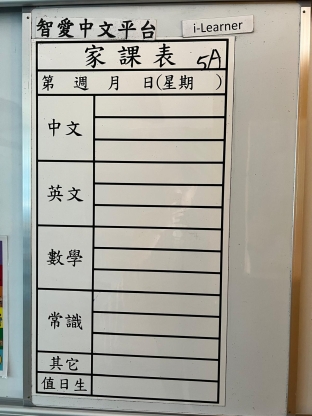 智愛中文平台
i-Learner
家課表 5A
第 週 月 日(星期 )
中文
英文
數學
常識
其它
值日生